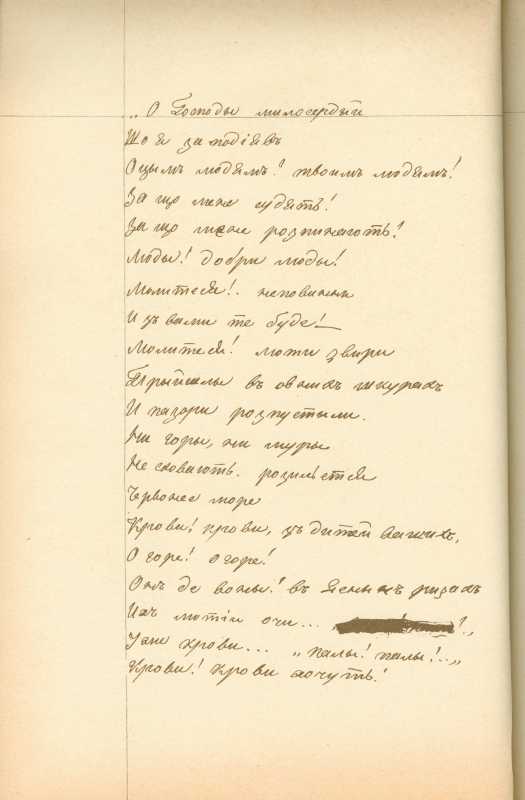 „О Господы милосердый
Що я заподіявъ
Оцымъ людямъ? твоимъ людямъ!
За що мене судятъ!
За що мене розпинаютъ?
Люды! добри люды!
Молитеся!. неповинни
И зъ вами те буде! —
Молитеся! люти звири
Прыйшлы въ овчихъ шкурахъ
И пазори розпустыли.
Ни горы, ни муры
Не сховаютъ. розильется
Червонее море
Крови! крови, зъ дитей вашихъ,
О горе! о горе!
Онъ де воны! въ ясныхъ ризахъ
Ихъ лютіи очи...
Уже крови... „палы! палы!..„
Крови! крови хочутъ!